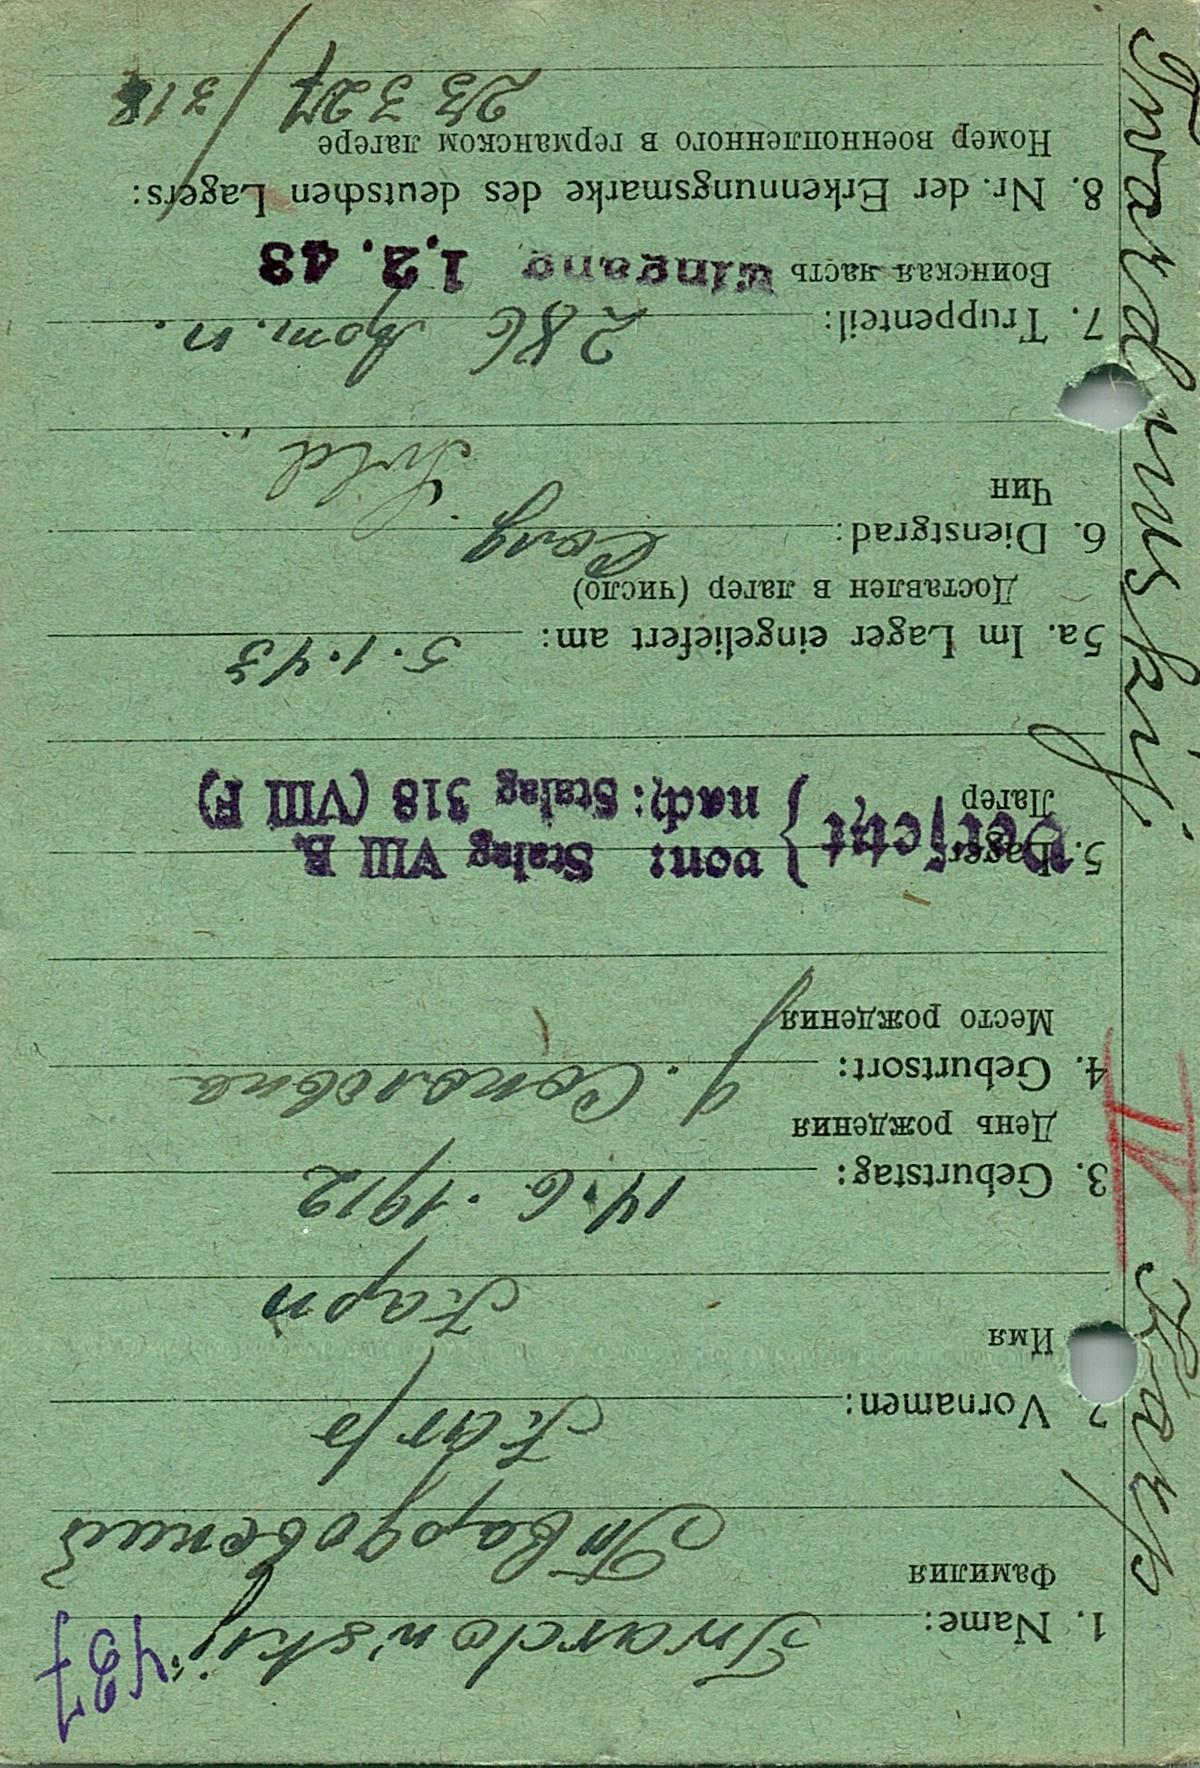 437
1. Name: Twardowskij
Фамилия Твардовский
2. Vornamen: Karp
Имя Карп
3. Geburtstag: 14.6.1912
День рождения
4. Geburtsort:
Место рождения
5. Lager: Versetzt } von: Stalag VIII B.
Лагер nach: Stalag 318 (VIII F)
5a. Im Lager eingeliefert am: 5.1.43
Доставлен в лагер (число)
6. Dienstgrad: Солд
Чин Sold.
7. Truppenteil: 286
Воинская часть Eingang 1.2.43
8. Nr. der Erkennungsmarke des deutschen Lagers:
Номер военнопленного в германском лагере
23 327 / 318
Karp